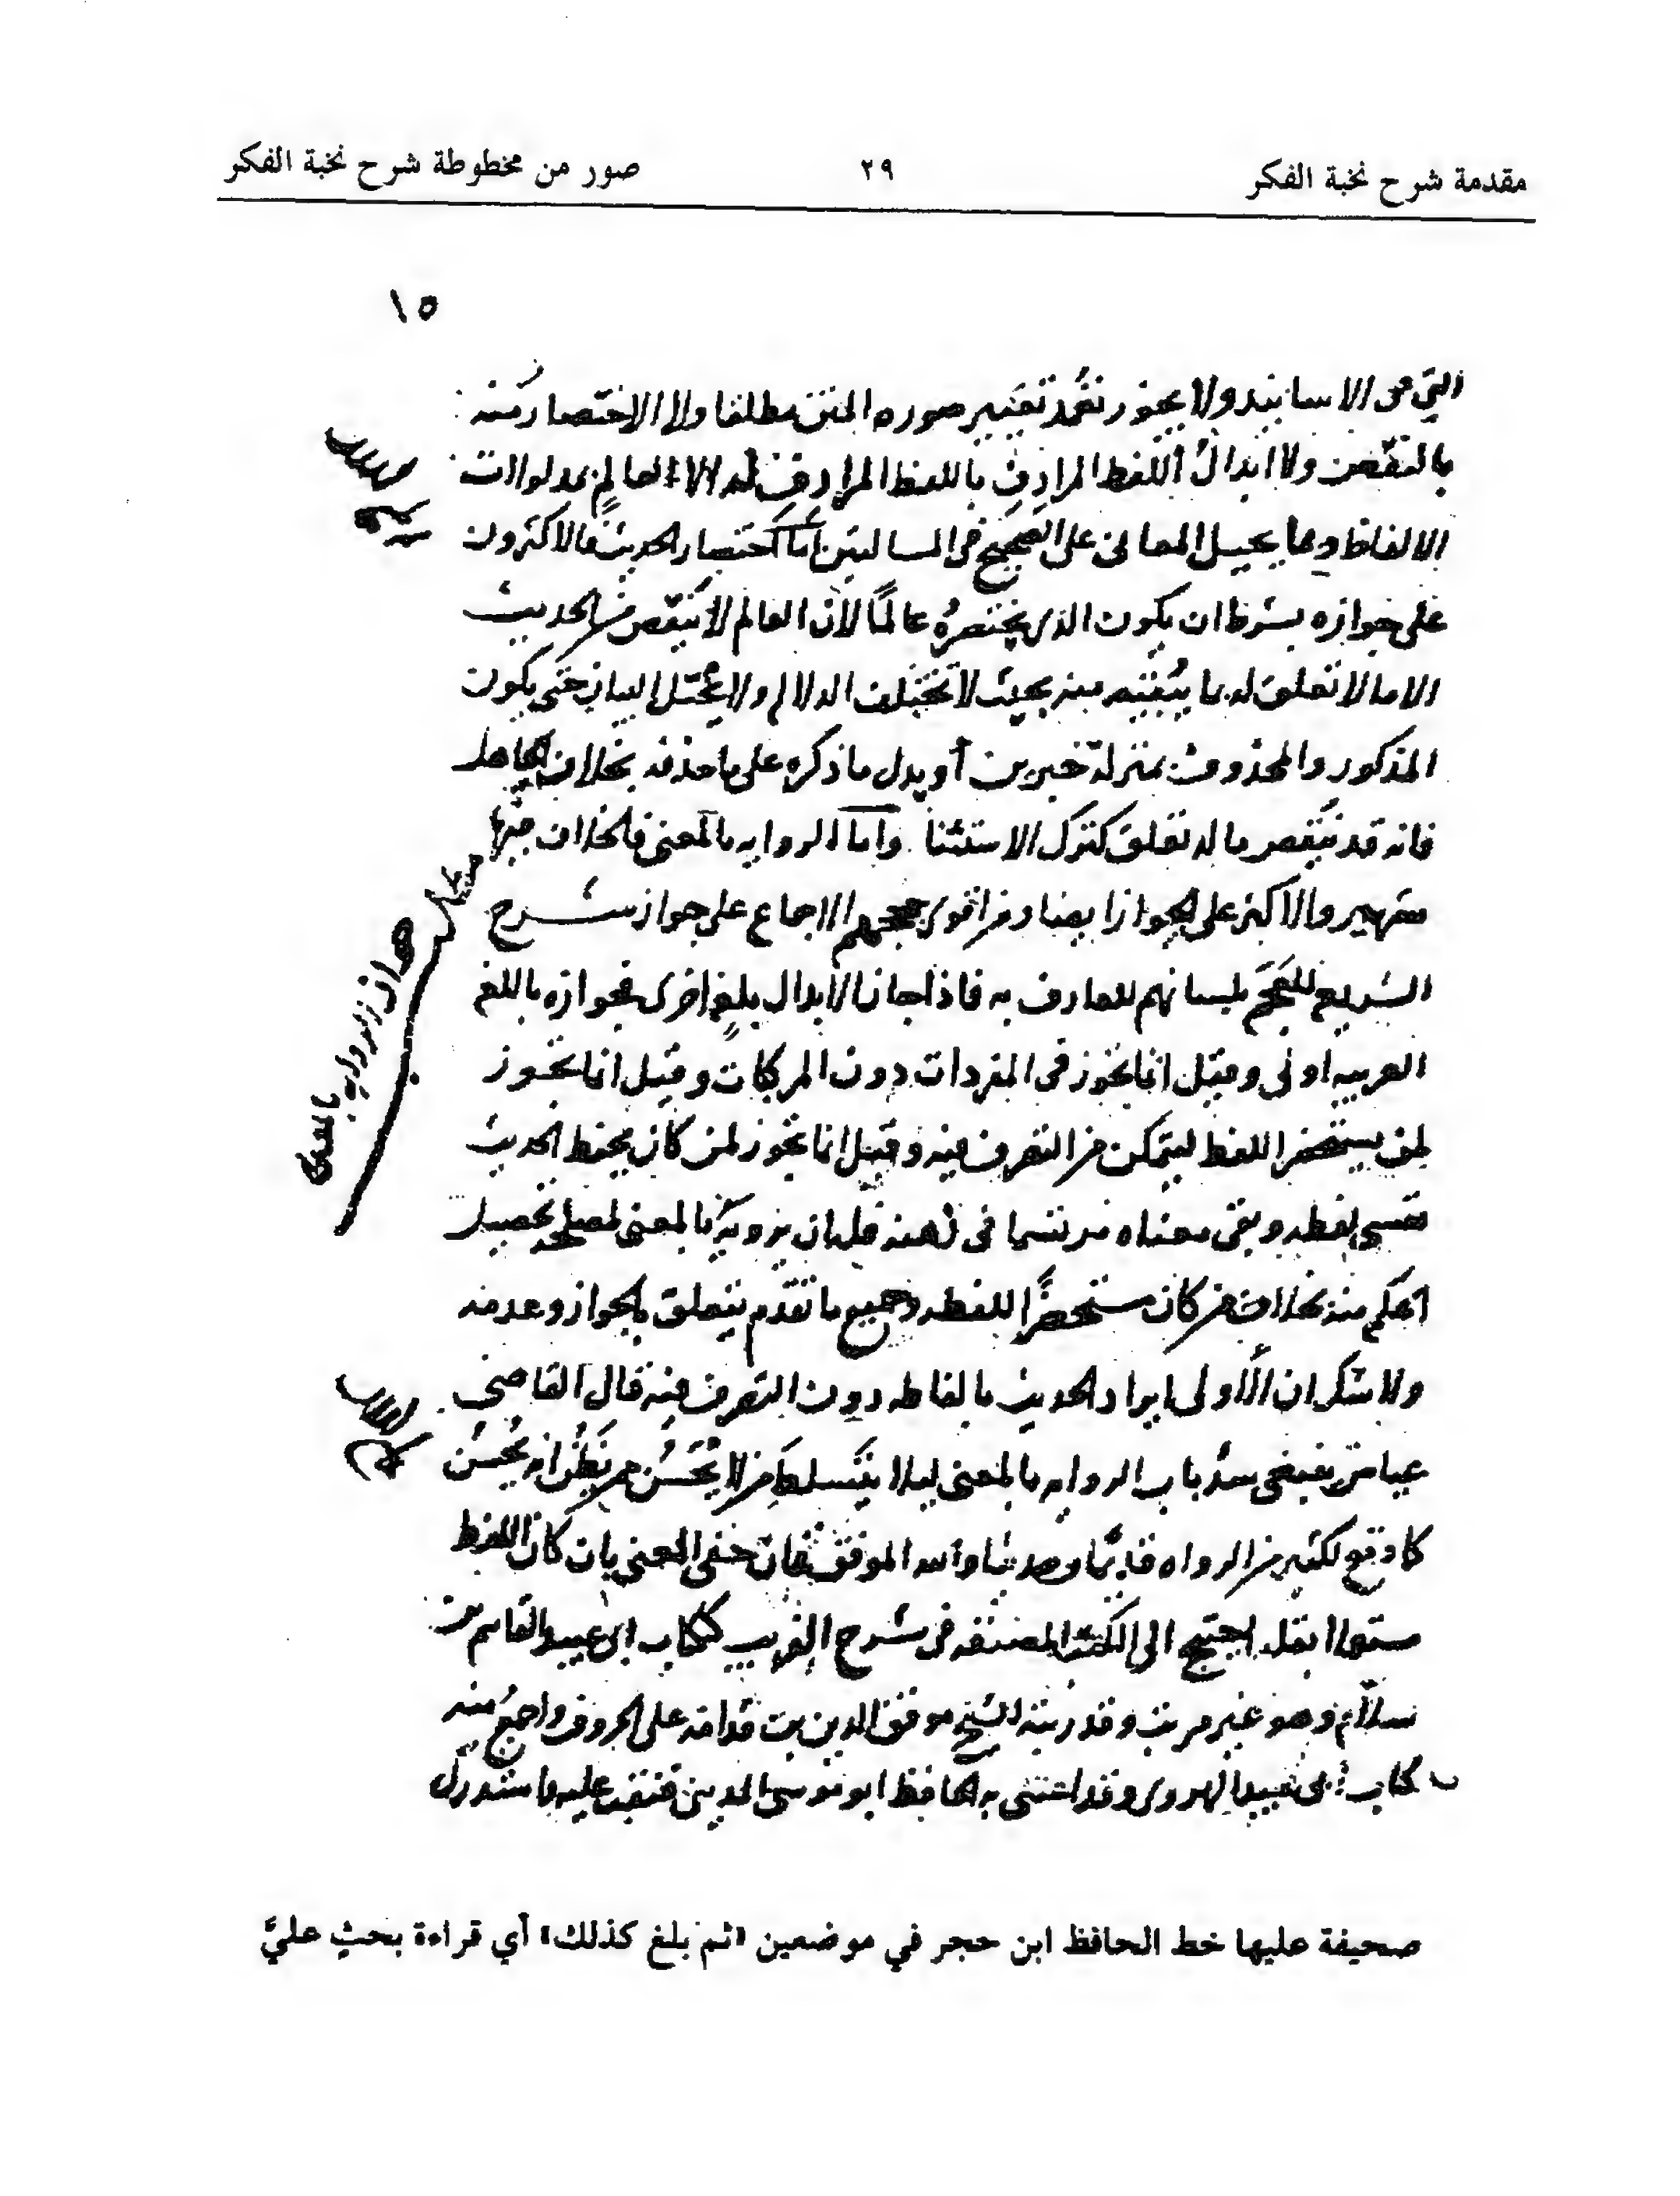 مقدمة شرح نخبة الفكر
٢٩
صور من مخطوطة شرح نخبة الفكر
١٥
التي من الاسانيد ولا يجوز تعمد تغيير صوره المتن مطلقا ولا الاختصار منه
بالنقص ولا ابدال اللفظ المرادف باللفظ المرادف له الا لعالم بمدلولات
الالفاظ وبما يحيل المعاني على الصحيح في المسالتين اما اختصار الحديث فالاكثرون
على جوازه بشرط ان يكون الذي يختصره عالمًا لان العالم لا ينقص من الحديث
الا ما لا تعلق له بما يبقيه منه بحيث لا تختلف الدلاله ولا يختل البيان حتى يكون
المذكور والمحذوف بمنزلة خبرين أو يدل ما ذكره على ما حذفه بخلاف الجاهل
فانه قد ينقص ما له تعلق كترك الاستثنا واما الروايه بالمعنى فالخلاف فيها
شهير والاكثر على الجواز ايضا ومن اقوى حججهم الاجماع على جواز شرح
الشريعه للعجم بلسانهم للعارف به فاذا جاز الابدال بلغه اخرى فجوازه باللغه
العربيه اولى وقيل انما يجوز في المفردات دون المركبات وقيل انما يجوز
لمن يستحضر اللفظ ليتمكن من التصرف فيه وقيل انما يجوز لمن كان يحفظ الحديث
فنسي لفظه وبقي معناه مرتسما في ذهنه فله ان يرويه بالمعنى لمصلحه تحصيل
الحكم منه بخلاف من كان مستحضرًا للفظه وجميع ما تقدم يتعلق بالجواز وعدمه
ولا شك ان الأولى ايراد الحديث بالفاظه دون التصرف فيه قال القاضي
عياض ينبغي سد باب الروايه بالمعنى ليلا يتسلط من لا يحسن ممن يظن انه يحسن
كما وقع لكثير من الرواه قديمًا وحديثا والله الموفق فان خفي المعنى بان كان اللفظ
مستعملا بقله احتيج الى الكتب المصنفه في شرح الغريب ككتاب ابي عبيد القاسم بن
سلّام وهو غير مرتب وقد رتبه الشيخ موفق الدين بن قدامه على الحروف واجمع منه
كتاب ابي عبيد الهروي وقد اعتنى به الحافظ ابو موسى المديني فنقب عليه واستدرك
صحيفة عليها خط الحافظ ابن حجر في موضعين «ثم بلغ كذلك» أي قراءة بحثٍ عليَّ